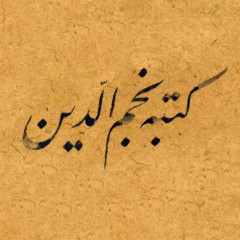 کتبه نجم الدّین